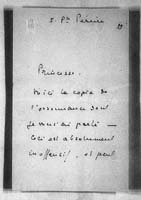 Princesse.
Voici la copie de
l'ordonnance dont
je vous ai parlé —
Ceci est absolument
inoffensif, et peut